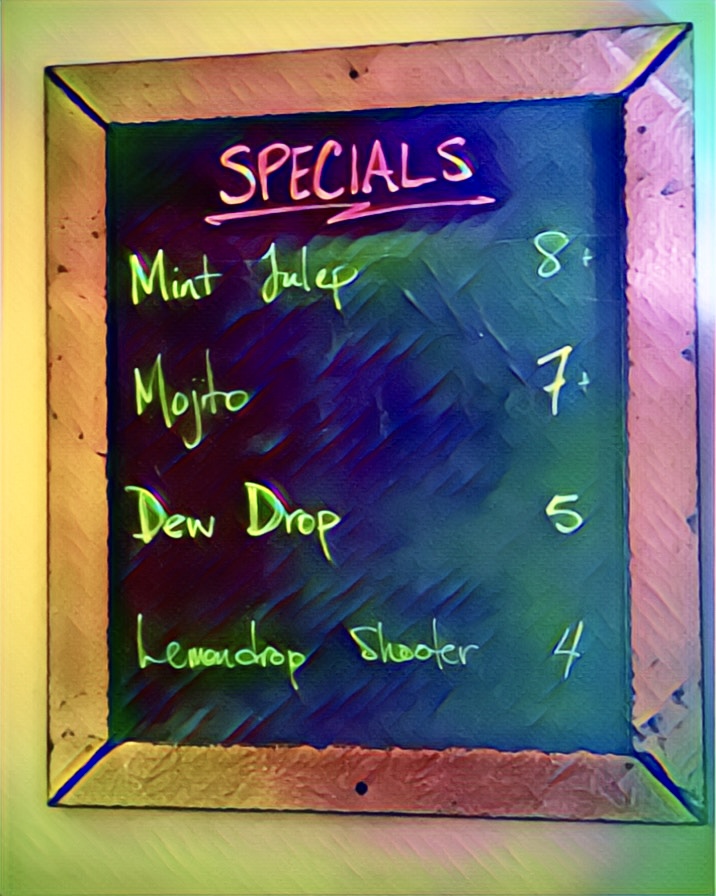 SPECIALS
Mint Julep 8+
Mojito 7+
Dew Drop 5
Lemondrop Shooter 4